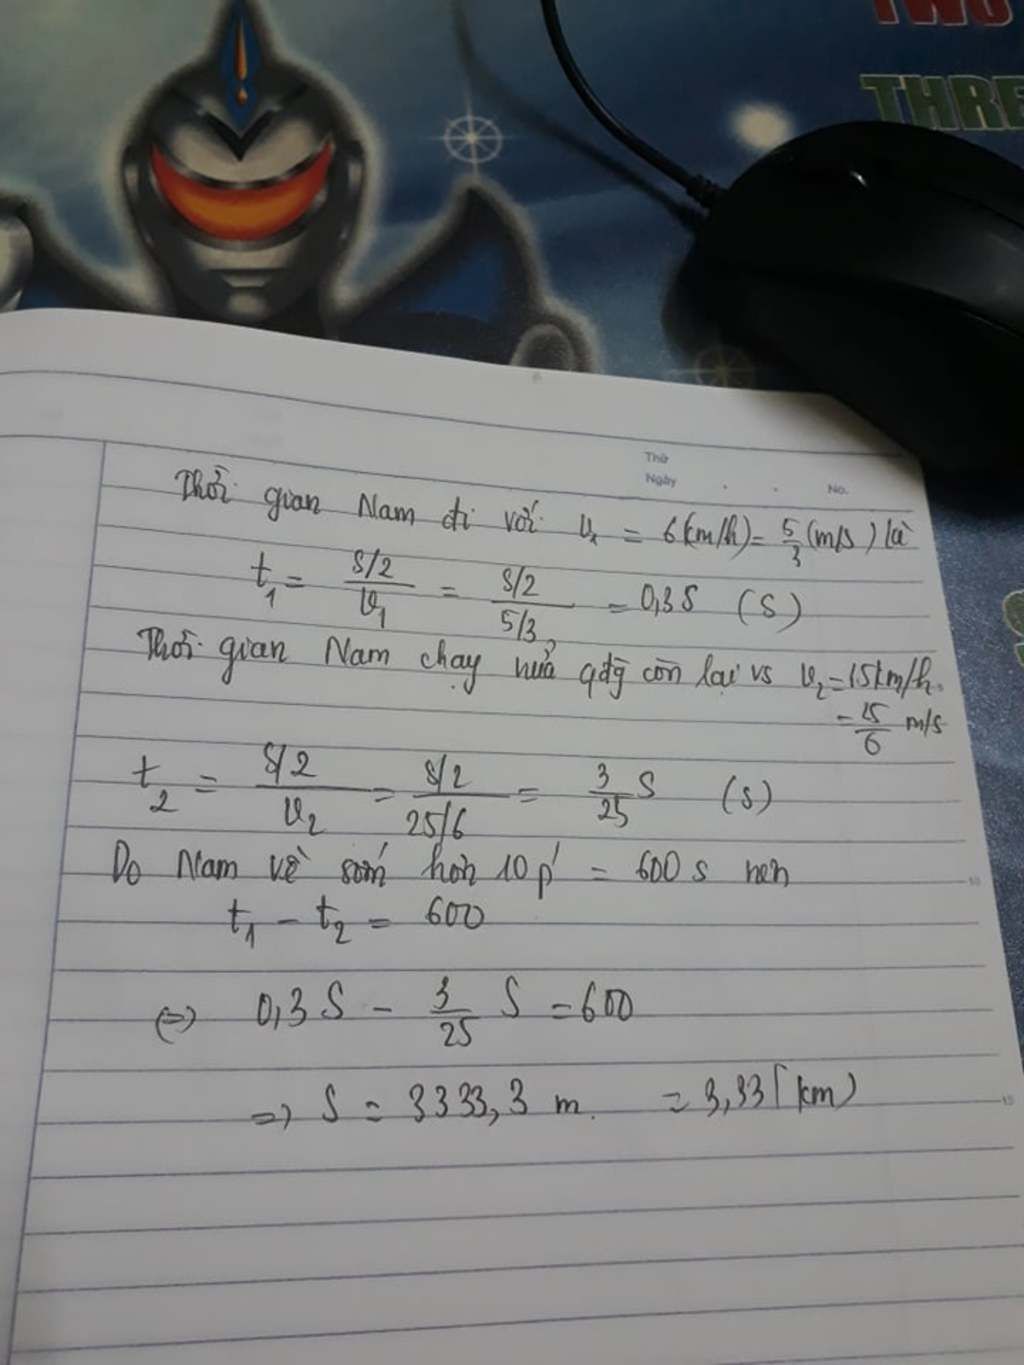 TWO
THRE
Thứ
Ngày . . No.
Thời gian Nam đi với v₁ = 6(km/h) = 5/3 (m/s) là
t₁ = (S/2)/v₁ = (S/2)/(5/3) = 0,3S (s)
Thời gian Nam chạy nửa qđg còn lại vs v₂ = 15km/h.
= 25/6 m/s
t₂ = (S/2)/v₂ = (S/2)/(25/6) = 3/25 S (s)
Do Nam về sớm hơn 10p' = 600s nên
t₁ - t₂ = 600
(=) 0,3S - 3/25 S = 600
=> S = 3333,3 m. = 3,33 (km)
10
15